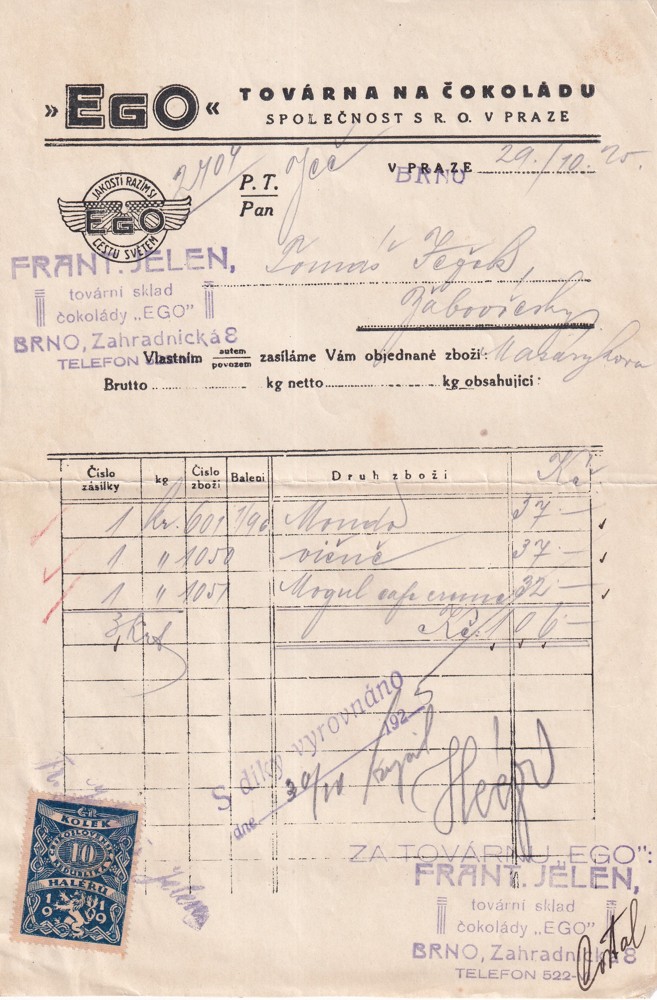 » EGO « TOVÁRNA NA ČOKOLÁDU
SPOLEČNOST S R. O. V PRAZE
2704
V PRAZE 29./10. 25.
BRNO
JAKOSTÍ RAZÍM SI
EGO
CESTU SVĚTEM
P. T.
Pan
Tomáš
FRANT. JELEN,
tovární sklad
čokolády „EGO"
BRNO, Zahradnická 8
TELEFON
Žabovřesky
Masarykova
Vlastním autem povozem zasíláme Vám objednané zboží:
Brutto kg netto kg obsahující:
Číslo zásilky kg Číslo zboží Balení Druh zboží Kč
1 kr. 601 1/96 37.—
1 " 1050 37.—
1 " 1051 Mogul 32.—
3 Krt Kč. 106.—
S díky vyrovnáno
dne 30/10 1925
KOLEK
10
HALÉŘŮ
1919
ZA TOVÁRNU „EGO":
FRANT. JELEN,
tovární sklad
čokolády „EGO"
BRNO, Zahradnická 8
TELEFON 522-